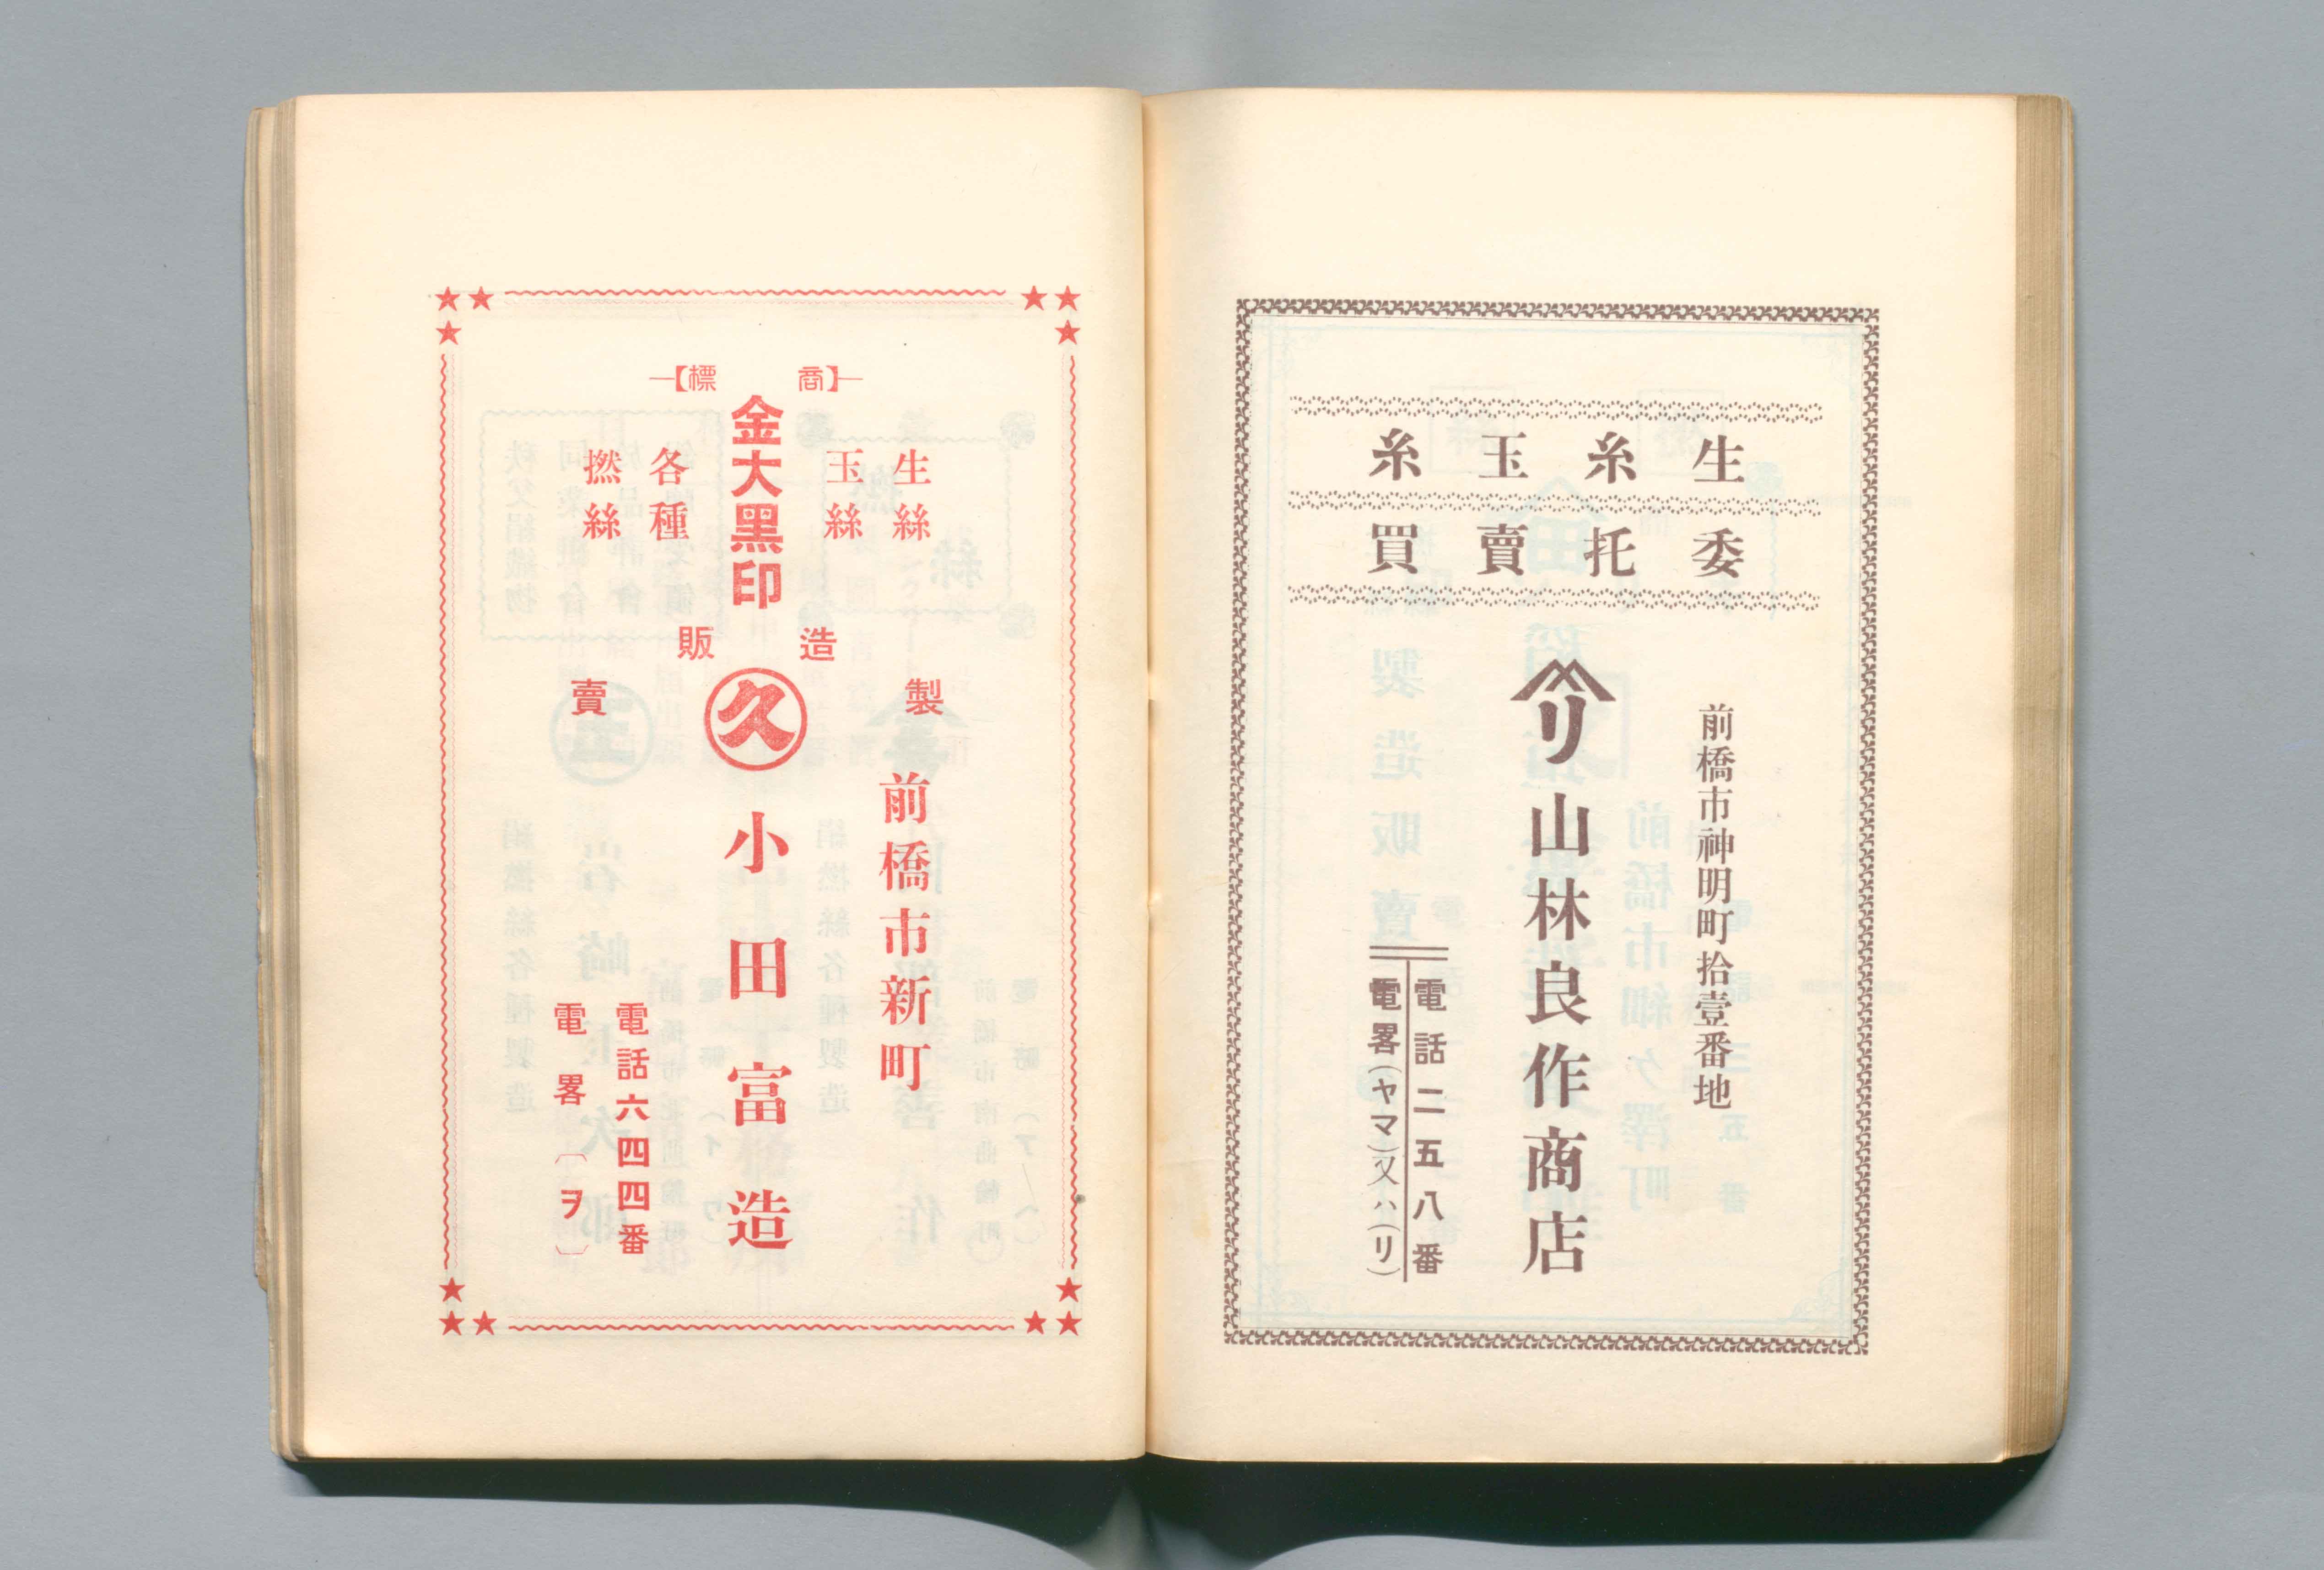 生糸玉糸
委托賣買
前橋市神明町拾壹番地
リ
山林良作商店
電話二五八番
電畧(ヤマ)又ハ(リ)
商標
金大黑印
生絲
玉絲
各種
撚絲
製造販賣
久
前橋市新町
小田富造
電話六四四番
電畧〔ヲ〕